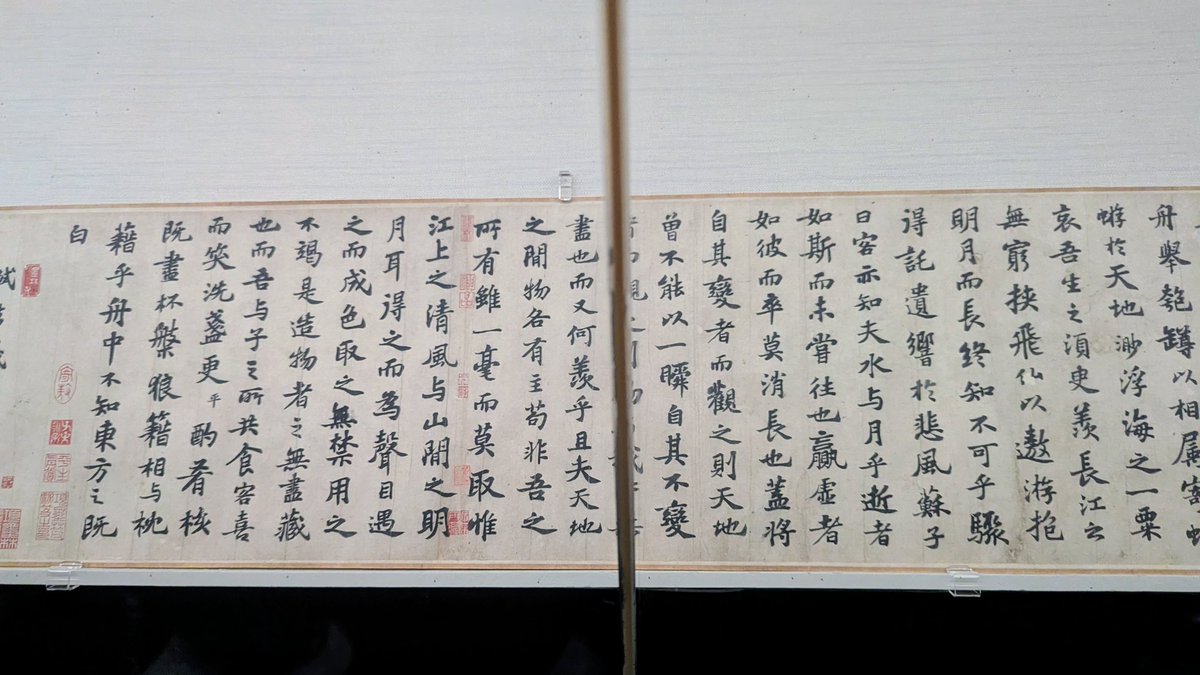 舟舉匏罇以相屬寄蜉
蝣於天地渺浮海之一粟
哀吾生之須臾羨長江之
無窮挾飛仙以遨游抱
明月而長終知不可乎驟
得託遺響於悲風蘇子
曰客亦知夫水与月乎逝者
如斯而未嘗往也贏虛者
如彼而卒莫消長也蓋將
自其變者而觀之則天地
曾不能以一瞬自其不變
盡也而又何羨乎且夫天地
之間物各有主苟非吾之
所有雖一毫而莫取惟
江上之清風与山間之明
月耳得之而為聲目遇
之而成色取之無禁用之
不竭是造物者之無盡藏
也而吾与子之所共食客喜
而笑洗盞更酌肴核
既盡杯槃狼籍相与枕
藉乎舟中不知東方之既
白